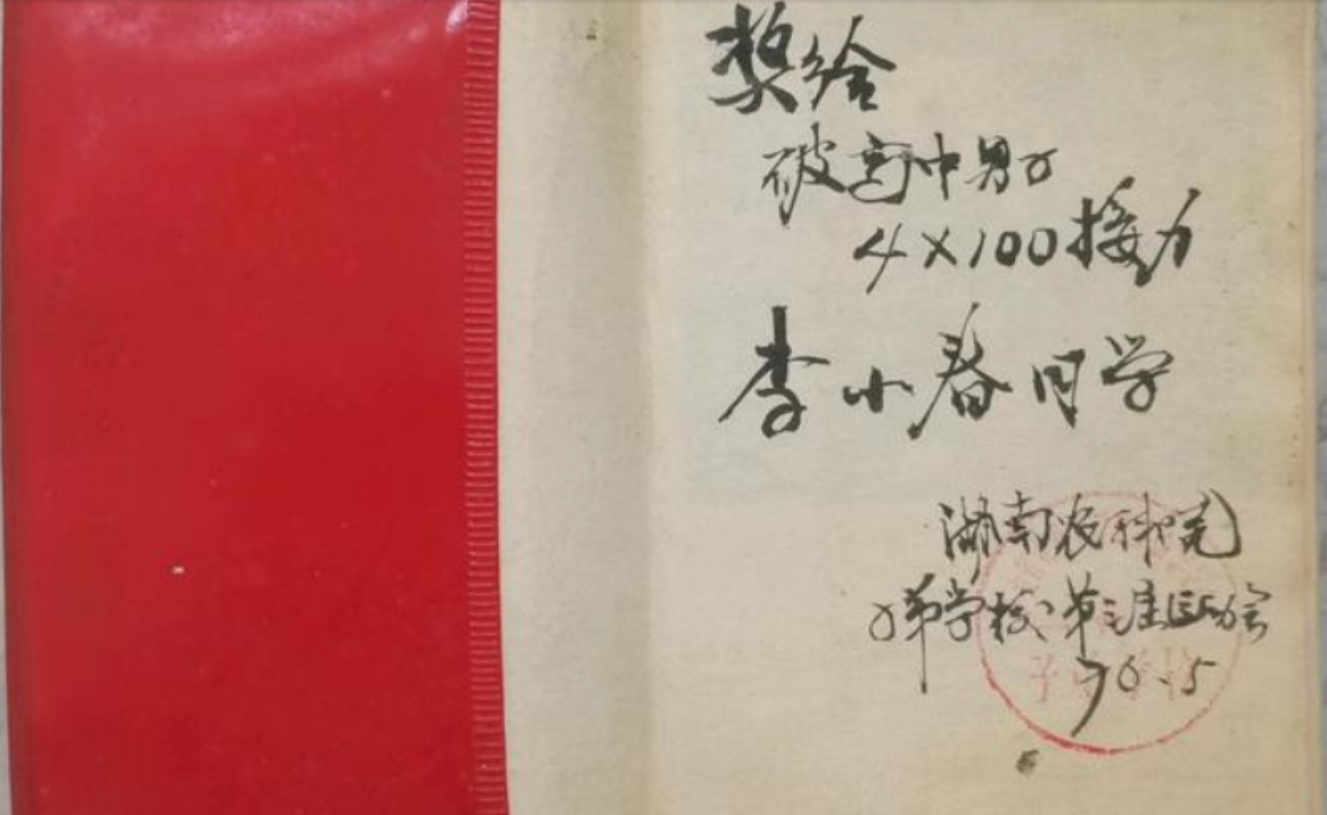 奖给
破高中男子
4×100接力
李小春同学
湖南农科院
子弟学校第三届运动会
76.5